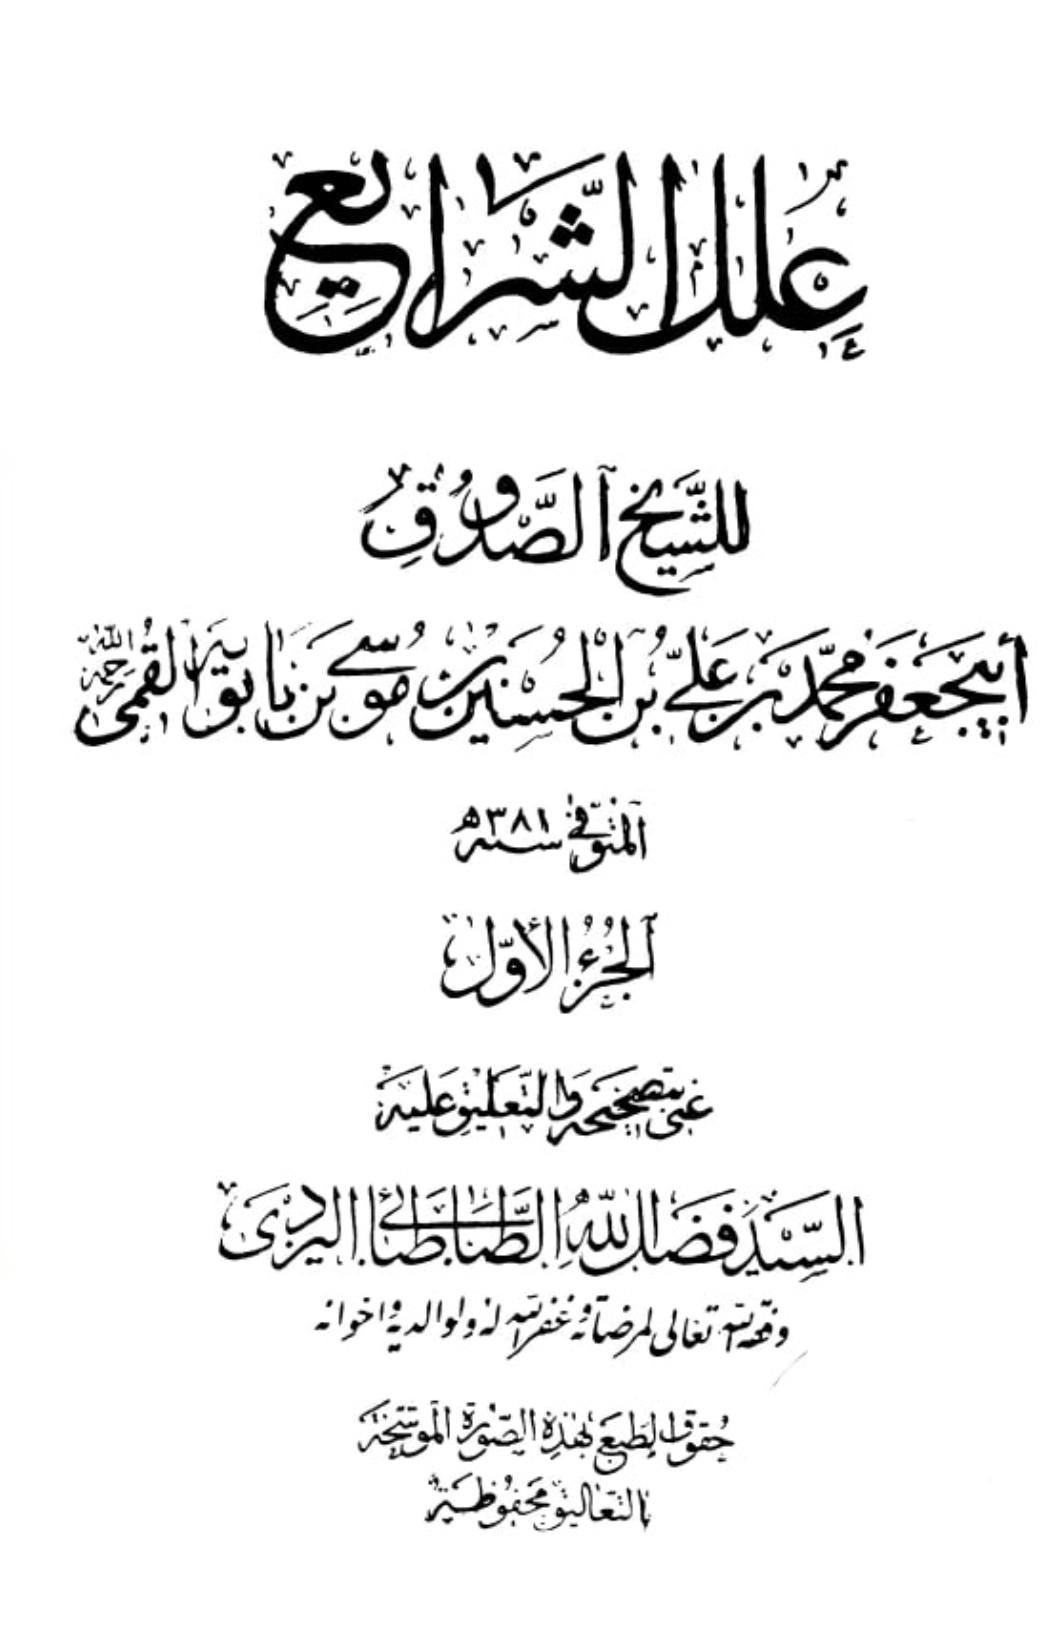 علل الشرايع
للشيخ الصدوق
أبي جعفر محمد بن علي بن الحسين بن موسى بن بابويه القمي رحمه الله
المتوفى سنة ٣٨١ هـ
الجزء الأول
عنى بتصحيحه والتعليق عليه
السيد فضل الله الطباطبائي اليزدي
وفقه الله تعالى لمرضاته وغفر الله له ولوالديه واخوانه
حقوق الطبع بهذه الصورة الموشحة
بالتعاليق محفوظة